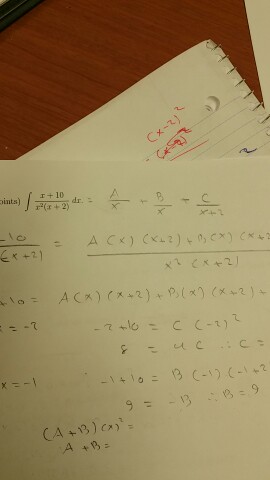 (x-2)²
oints) ∫ x+10 / x²(x+2) dx = A/x + B/x + C/x+2
-10 / (x+2) = A(x)(x+2)+B(x)(x+2 / x²(x+2)
+10 = A(x)(x+2)+B(x)(x+2)+
= -2 -2+10 = C(-2)²
8 = 4C ∴ C =
x=-1 -1+10 = B(-1)(-1+2
9 = -B ∴ B=9
(A+B)(x)² =
A+B=